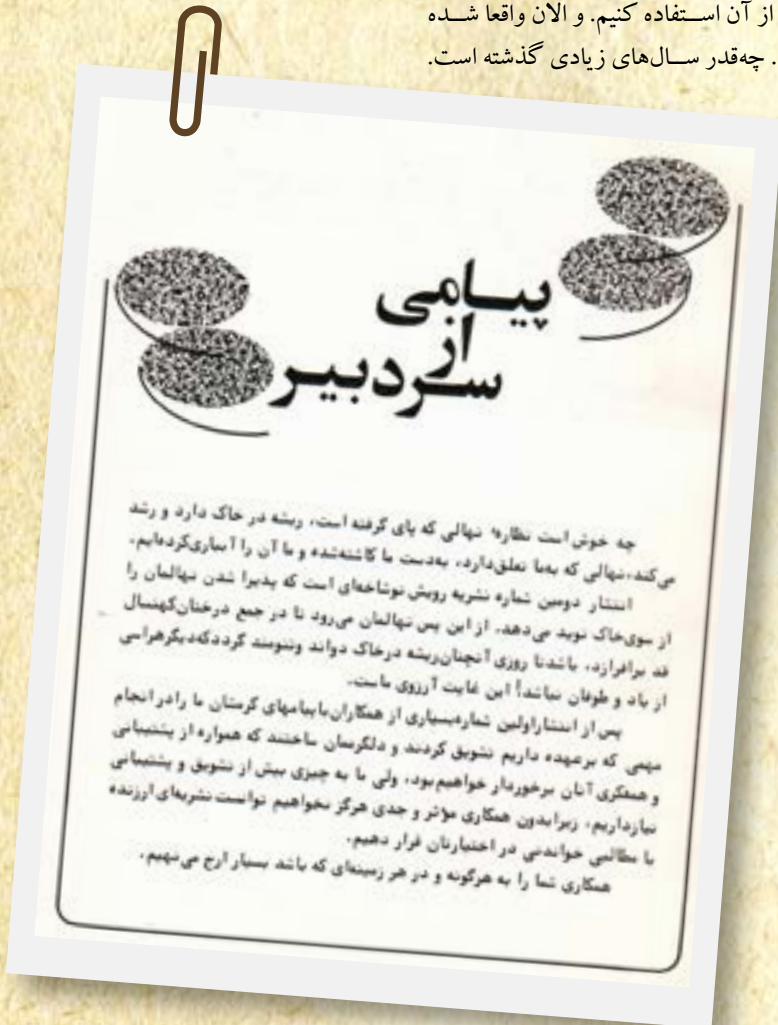 از آن استفاده کنیم. و الان واقعا شده
. چه‌قدر سال‌های زیادی گذشته است.
پیامی
از
سردبیر
چه خوش است نظارهٔ نهالی که پای گرفته است، ریشه در خاک دارد و رشد
می‌کند، نهالی که به‌ما تعلق‌دارد، به‌دست ما کاشته‌شده و ما آن را آبیاری‌کرده‌ایم.
انتشار دومین شماره نشریه رویش نوشاخه‌ای است که پذیرا شدن نهالمان را
از سوی‌خاک نوید می‌دهد. از این پس نهالمان می‌رود تا در جمع درختان‌کهنسال
قد برافرازد، باشدتا روزی آنچنان‌ریشه درخاک دواند وتنومند گرددکه‌دیگرهراسی
از باد و طوفان نباشد! این غایت آرزوی ماست.
پس از انتشاراولین شماره‌بسیاری از همکاران‌باپیامهای گرمشان ما رادر انجام
مهمی که برعهده داریم تشویق کردند و دلگرممان ساختند که همواره از پشتیبانی
و همفکری آنان برخوردار خواهیم‌بود، ولی ما به چیزی بیش از تشویق و پشتیبانی
نیازداریم، زیرابدون همکاری مؤثر و جدی هرگز نخواهیم توانست نشریه‌ای ارزنده
با مطالبی خواندنی در اختیارتان قرار دهیم.
همکاری شما را به هرگونه و در هر زمینه‌ای که باشد بسیار ارج می‌نهیم.